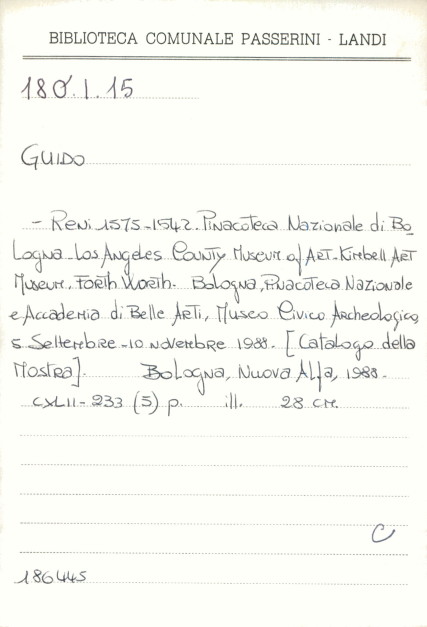 BIBLIOTECA COMUNALE PASSERINI - LANDI
180.I.15
GUIDO
- Reni 1575-1542. Pinacoteca Nazionale di Bo-
logna - Los Angeles County Museum of Art - Kimbell Art
Museum, Forth Worth. Bologna, Pinacoteca Nazionale
e Accademia di Belle Arti, Museo Civico Archeologico,
5 Settembre - 10 novembre 1988. [Catalogo della
Mostra]. Bologna, Nuova Alfa, 1988.
CXLII - 233 (5) p. ill. 28 cm.
C
186445